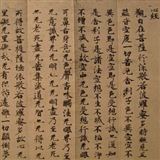 心經
觀自在菩薩行深般若波羅蜜多時照見五
蘊皆空度一切苦厄舍利子色不異空空不
異色色即是空空即是色受想行識亦復如
是舍利子是諸法空相不生不滅不垢不淨
不增不減是故空中無色無受想行識無眼
耳鼻舌身意無色聲香味觸法無眼界乃至
無意識界無無明亦無無明盡乃至無老死
亦無老死盡無苦集滅道無智亦無得以無
所得故菩提薩埵依般若波羅蜜多故心無
罣礙無罣礙故無有恐怖遠離一切顛倒夢